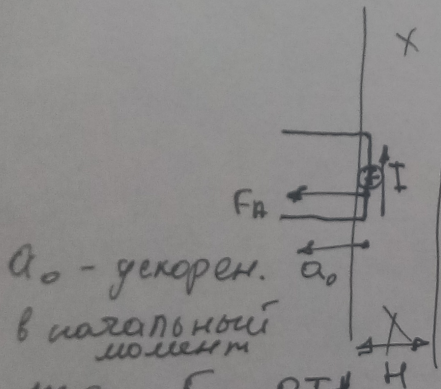 X
I
Fₐ
a₀
a₀ - ускорен.
в начальный
момент
H